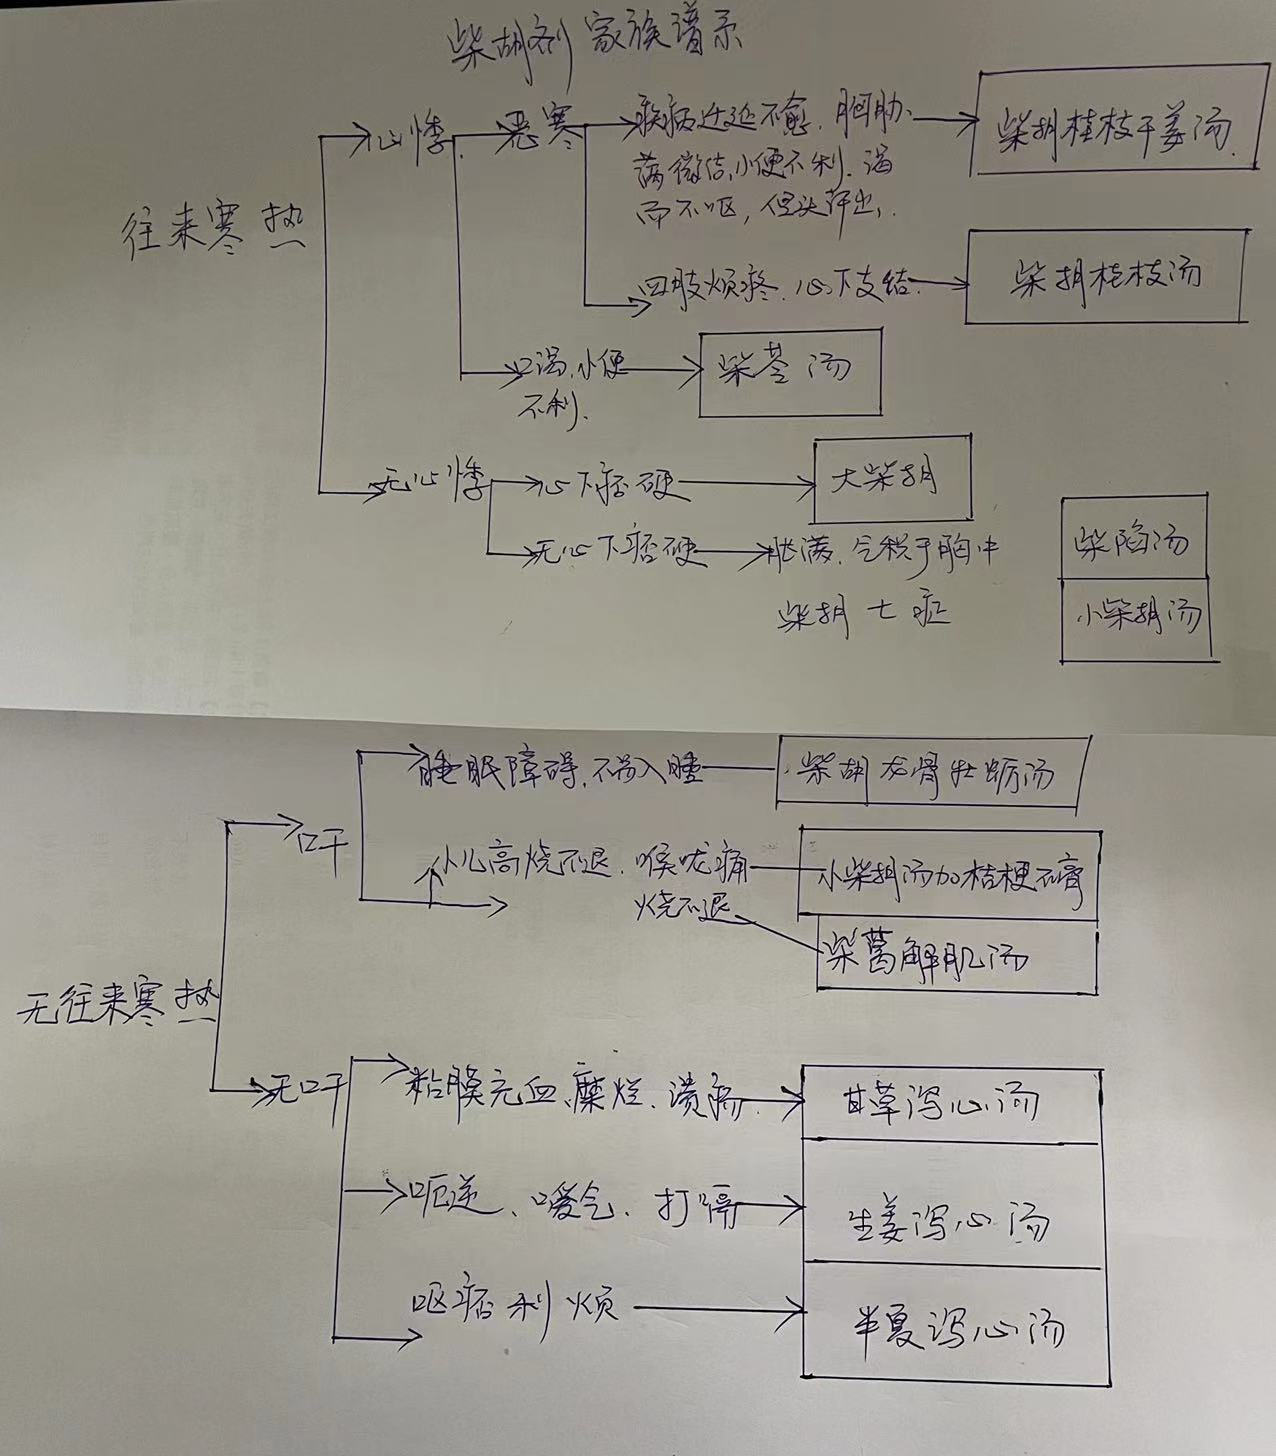 柴胡剂家族谱系
往来寒热
心悸
恶寒
疾病迁延不愈、胸胁
满微结、小便不利、渴
而不呕，但头汗出、
柴胡桂枝干姜汤
四肢烦疼、心下支结
柴胡桂枝汤
口渴、小便
不利、
柴苓汤
无心悸
心下痞硬
大柴胡
无心下痞硬
胀满、气积于胸中
柴陷汤
柴胡七症
小柴胡汤
无往来寒热
口干
睡眠障碍、不易入睡
柴胡龙骨牡蛎汤
小儿高烧不退、喉咙痛
小柴胡汤加桔梗石膏
烧不退
柴葛解肌汤
无口干
粘膜充血、糜烂、溃疡、
甘草泻心汤
呃逆、嗳气、打嗝
生姜泻心汤
呕痞利烦
半夏泻心汤